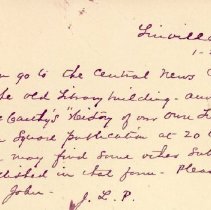 Linville
1-
go to the Central News
old Library building -
McCarthy's "History of our Own
Square publication at 20
may find some other
in that form - Please
John - J. L. P.